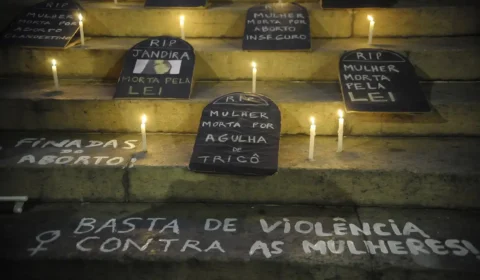 MULHER
MORTA POR
ABORTO
CLANDESTINO
MULHER
MORTA POR
ABORTO
INSEGURO
RIP
JANDIRA
MORTA PELA
LEI
RIP
MULHER
MORTA PELA
LEI
RIP
MULHER
MORTA POR
AGULHA
DE
TRICÔ
FINADAS
DO
ABORTO!
BASTA DE VIOLÊNCIA
CONTRA AS MULHERES!